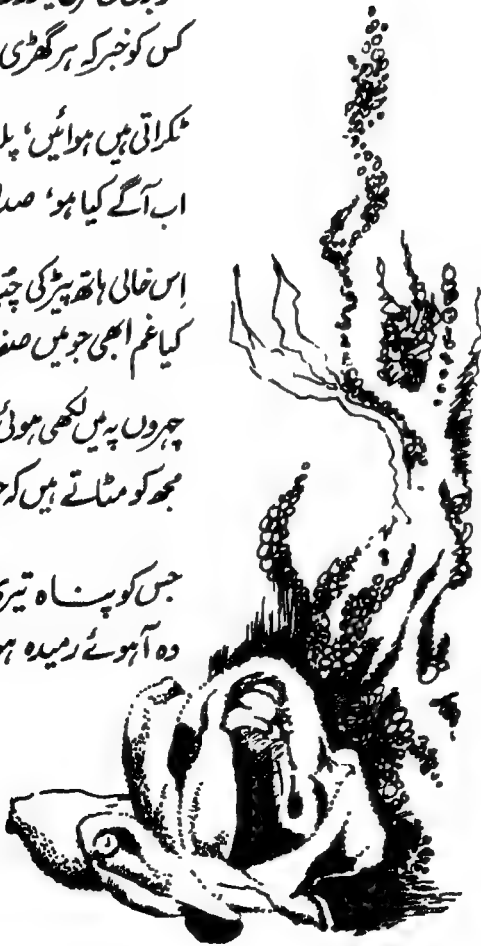 کس کو خبر کہ ہر گھڑی
ٹکراتی ہیں ہوائیں،
اب آگے کیا ہو،
اِس خالی ہاتھ پیڑ کی
کیا غم ابھی جو میں
چہروں پہ میں لکھی ہوئی
مجھ کو مٹاتے ہیں کہ
جس کو پناہ تیری
وہ آہوئے رمیدہ